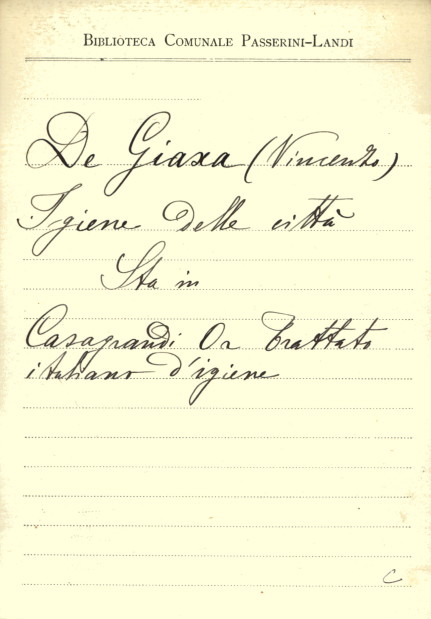 BIBLIOTECA COMUNALE PASSERINI-LANDI
De Giaxa (Vincenzo)
Igiene delle città
Sta in
Casagrandi Or Trattato
italiano d'igiene
C